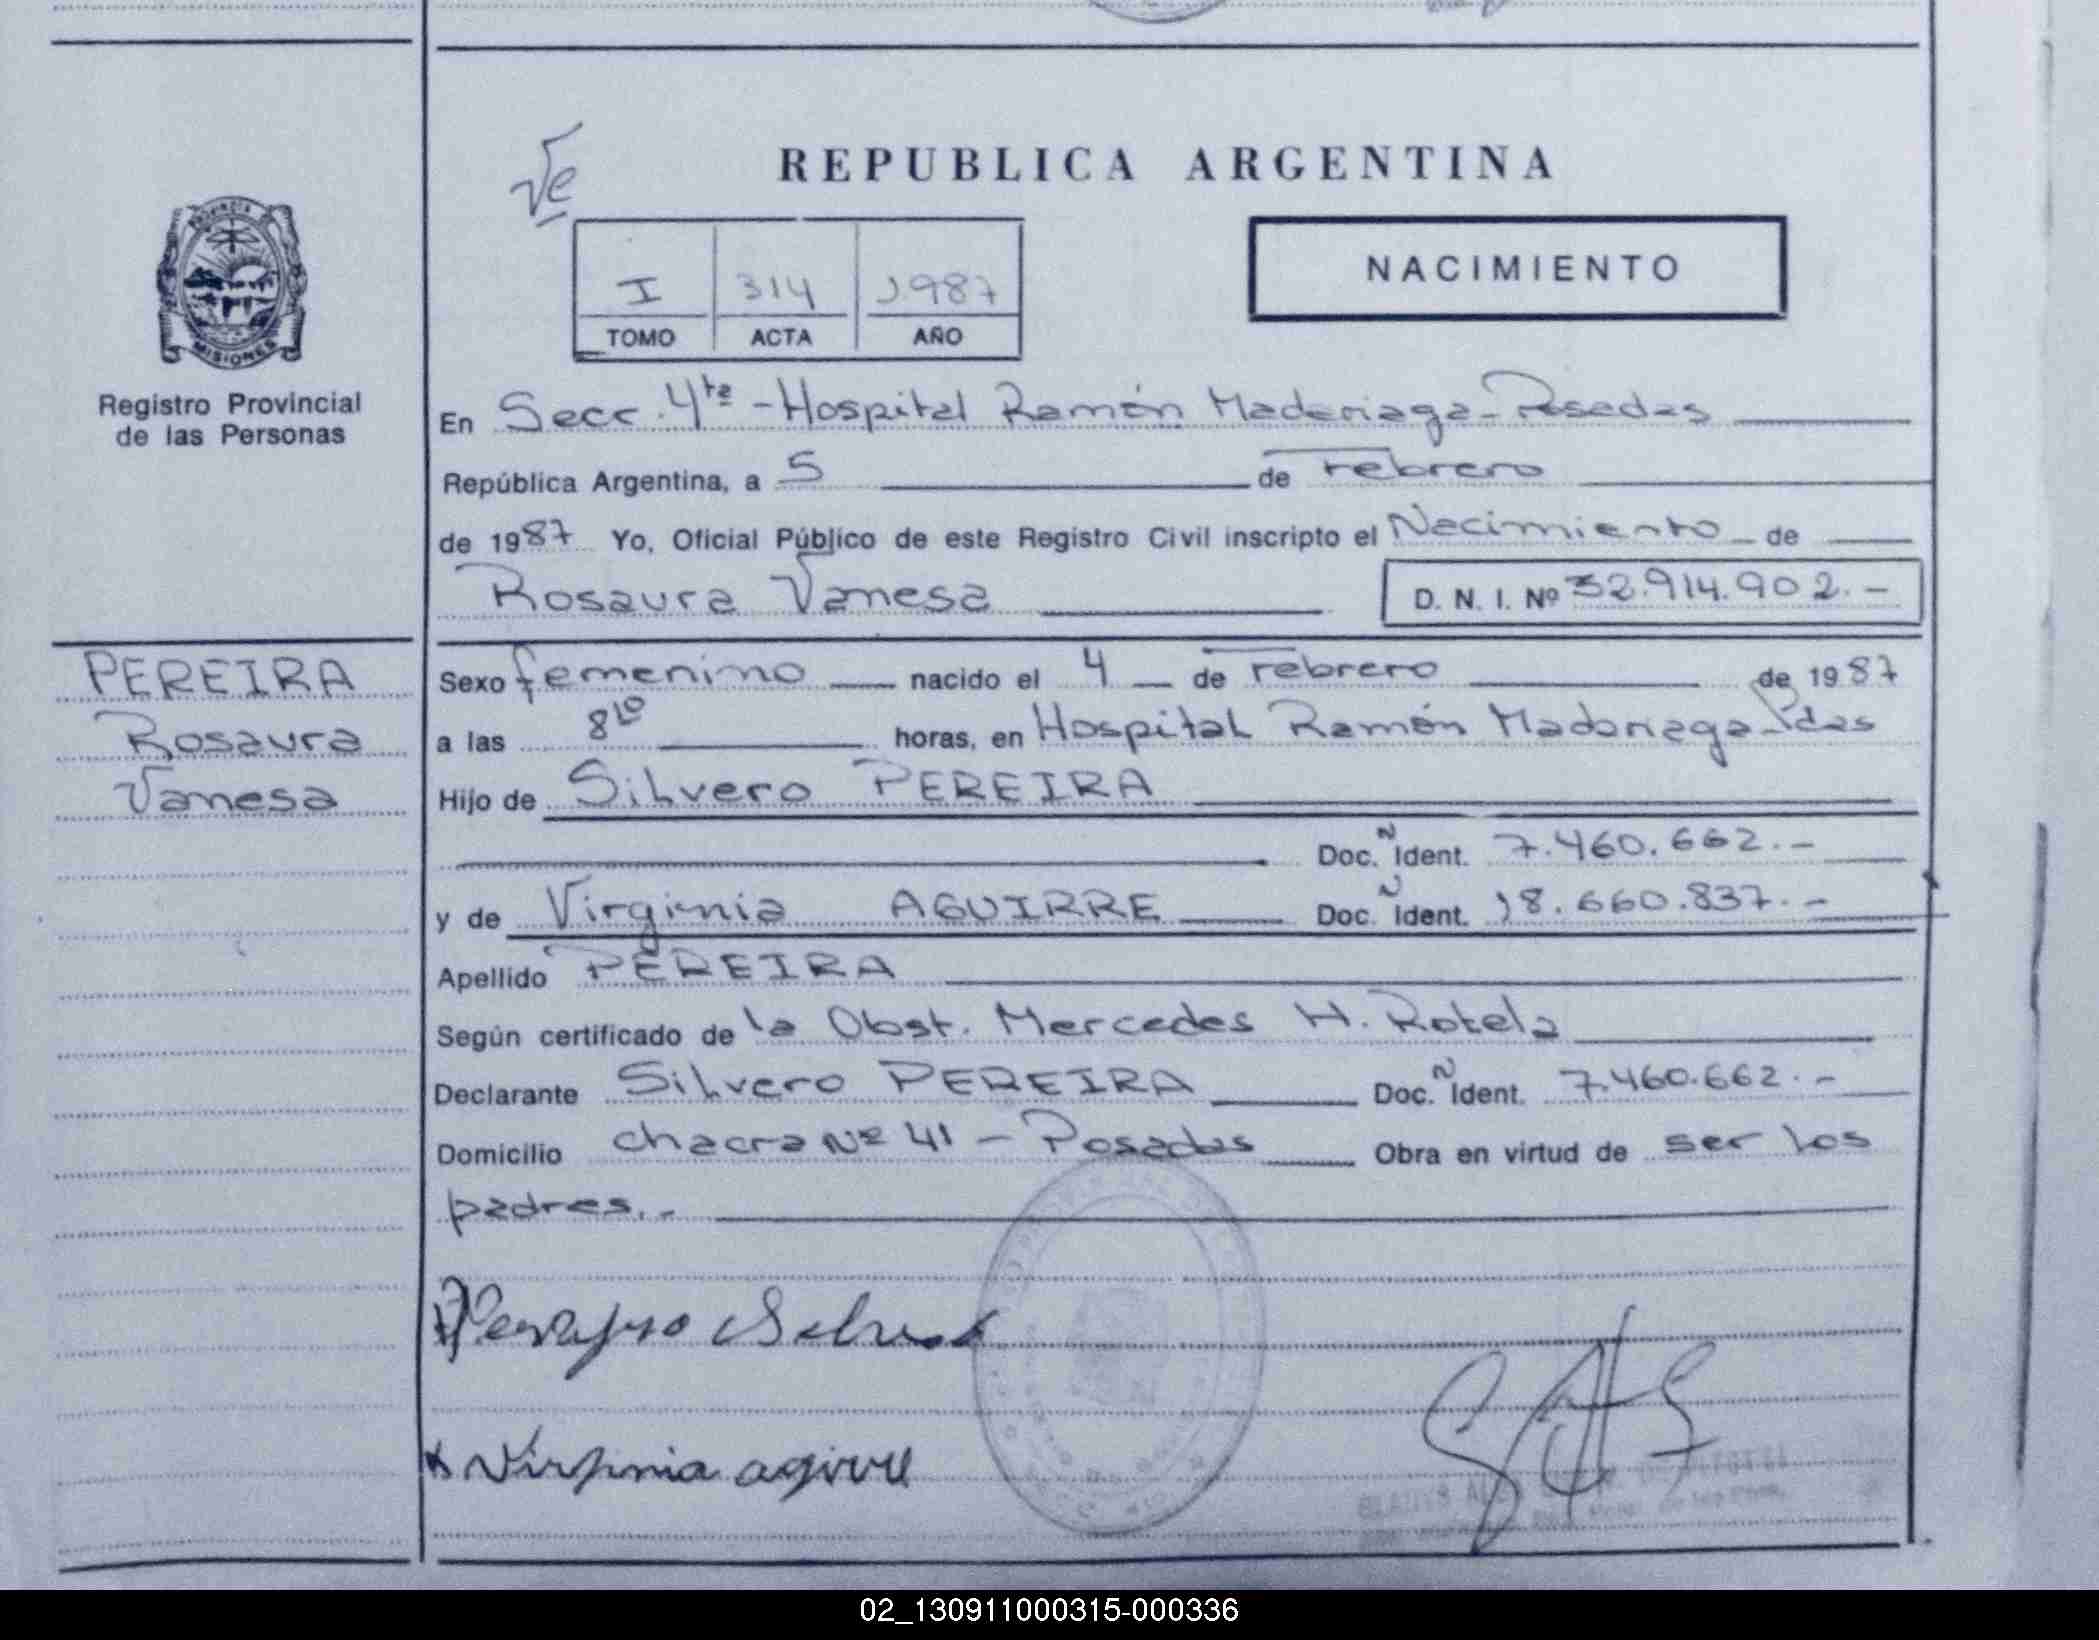 REPUBLICA ARGENTINA
I 314 1987
TOMO ACTA AÑO
NACIMIENTO
PROVINCIA
MISIONES
Registro Provincial
de las Personas
En Secc. 4ta - Hospital Ramón Madariaga - Posadas
República Argentina, a 5 de Febrero
de 1987 Yo, Oficial Público de este Registro Civil inscripto el Nacimiento de
Rosaura Vanesa D. N. I. Nº 32.914.902.-
PEREIRA
Rosaura
Vanesa
Sexo femenino nacido el 4 de Febrero de 1987
a las 8 10 horas, en Hospital Ramón Madariaga - Pdas
Hijo de Silvero PEREIRA
Doc. Ñ Ident. 7.460.662.-
y de Virginia AGUIRRE Doc. Ñ Ident. 18.660.837.-
Apellido PEREIRA
Según certificado de la Obst. Mercedes H. Rotela
Declarante Silvero PEREIRA Doc. Ñ Ident. 7.460.662.-
Domicilio chacra Nº 41 - Posadas Obra en virtud de ser los
padres.-
Virginia agirre
GLADYS
02_130911000315-000336